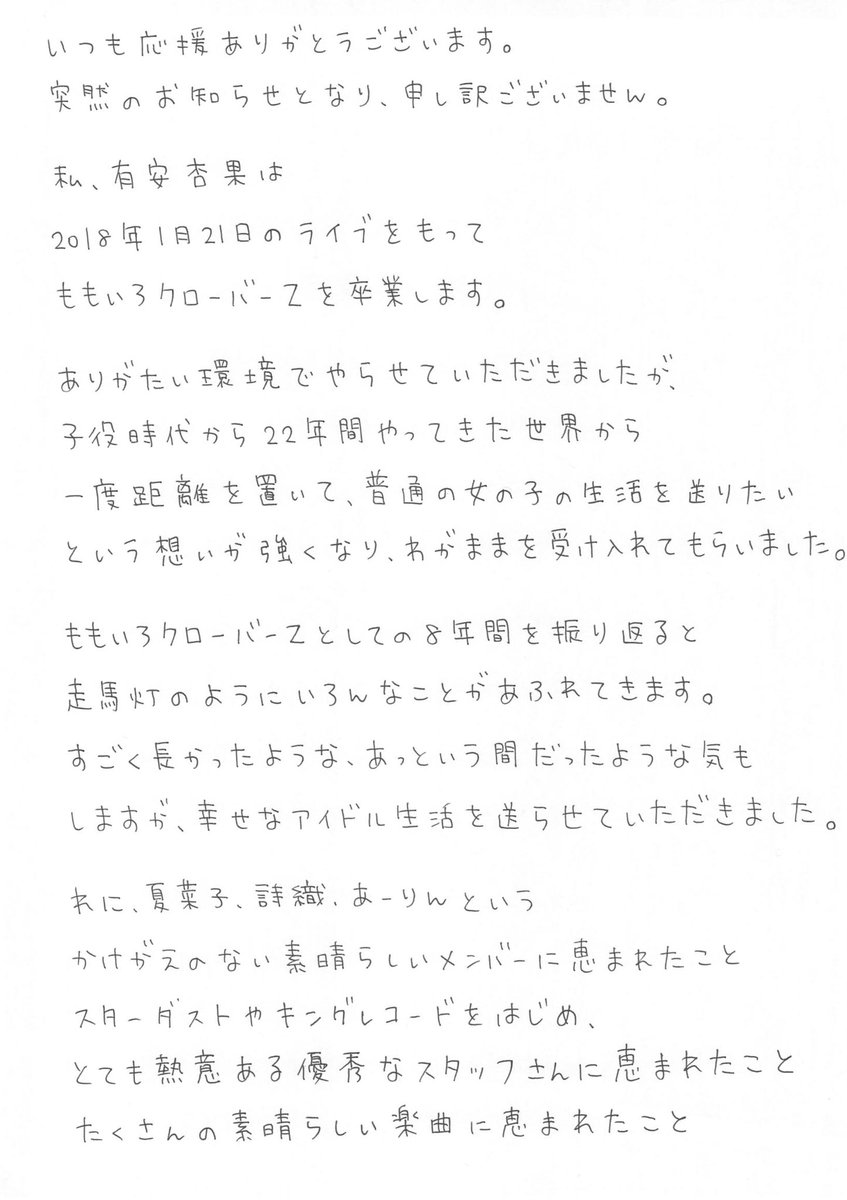 いつも応援ありがとうございます。
突然のお知らせとなり、申し訳ございません。
私、有安杏果は
2018年1月21日のライブをもって
ももいろクローバーZを卒業します。
ありがたい環境でやらせていただきましたが、
子役時代から22年間やってきた世界から
一度距離を置いて、普通の女の子の生活を送りたい
という想いが強くなり、わがままを受け入れてもらいました。
ももいろクローバーZとしての8年間を振り返ると
走馬灯のようにいろんなことがあふれてきます。
すごく長かったような、あっという間だったような気も
しますが、幸せなアイドル生活を送らせていただきました。
れに、夏菜子、詩織、あーりんという
かけがえのない素晴らしいメンバーに恵まれたこと
スターダストやキングレコードをはじめ、
とても熱意ある優秀なスタッフさんに恵まれたこと
たくさんの素晴らしい楽曲に恵まれたこと